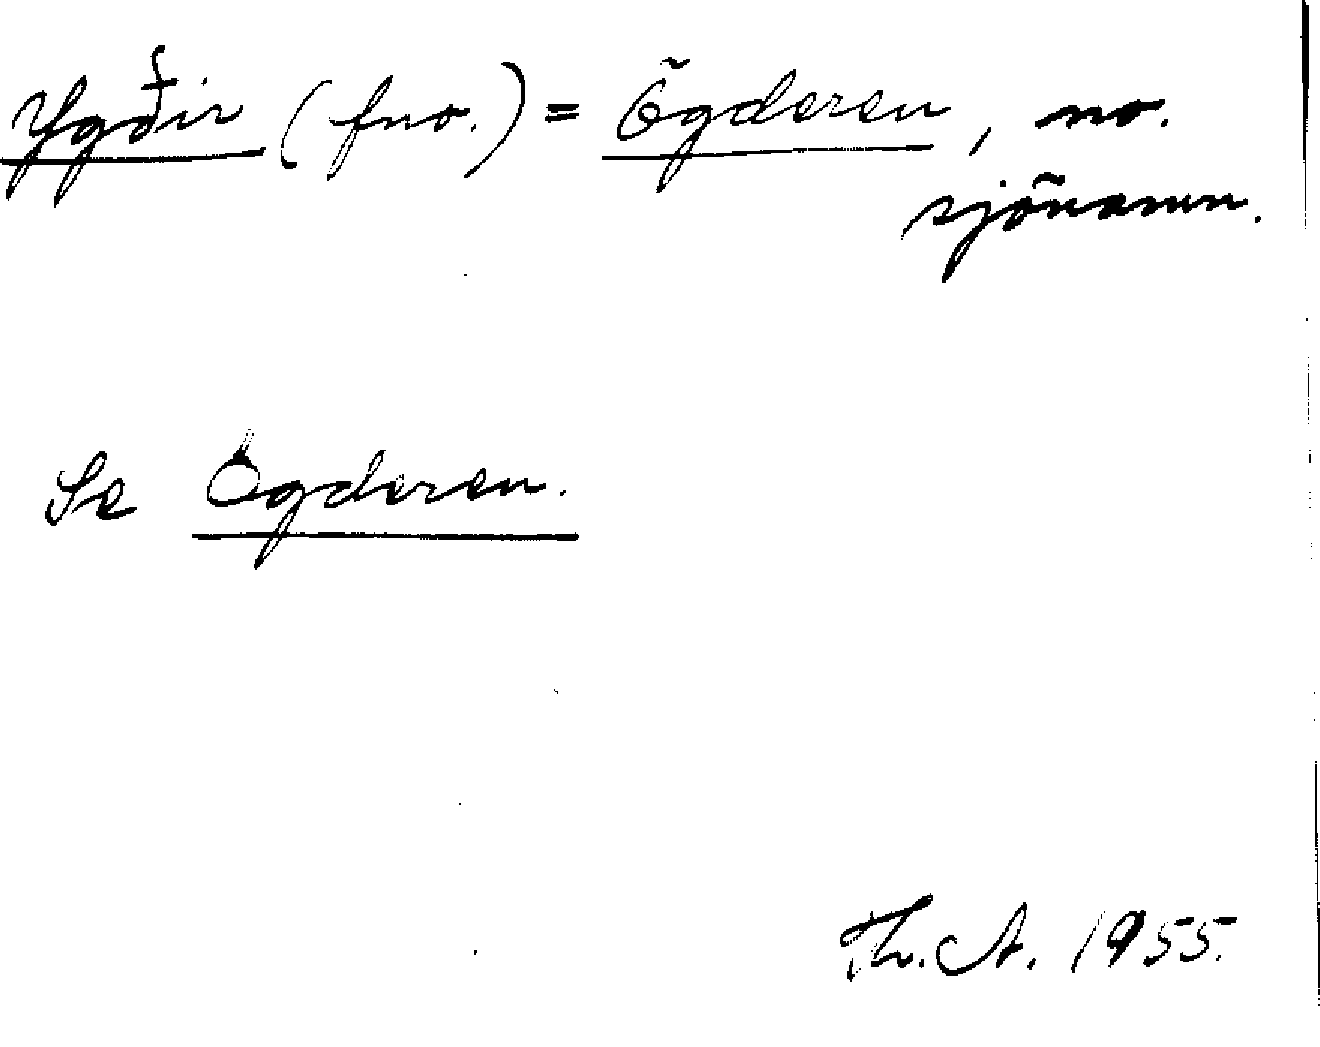 Ygðir (fno.) = Ögderen, no.
sjönamn.
Se Ögderen.
Th. A. 1955.